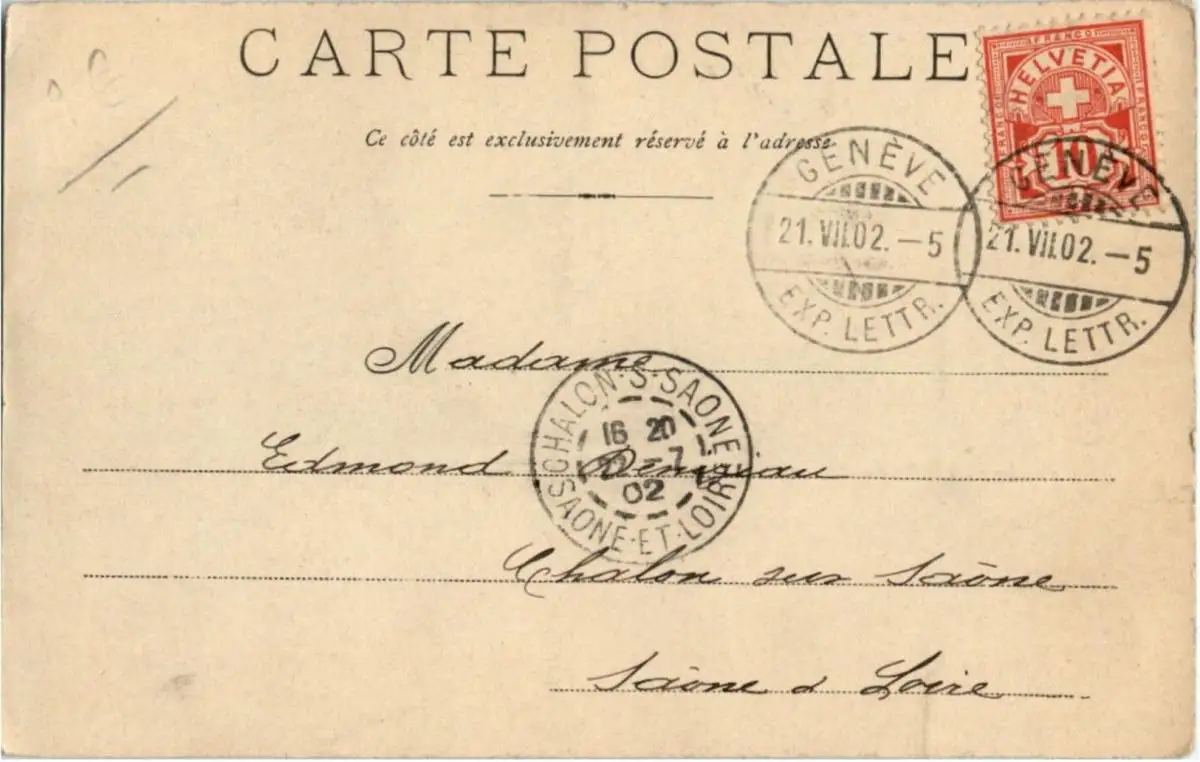 CARTE POSTALE
Ce côté est exclusivement réservé à l'adresse
FRANCO
FRANCO
FRANCO
HELVETIA
10
GENÈVE
21. VII. 02. – 5
EXP. LETTR.
GENÈVE
21. VII. 02. – 5
EXP. LETTR.
Madame
CHALON-S-SAONE
16 20
22 - 7
02
SAONE-ET-LOIRE
Edmond
Chalon sur Saône
Saône & Loire